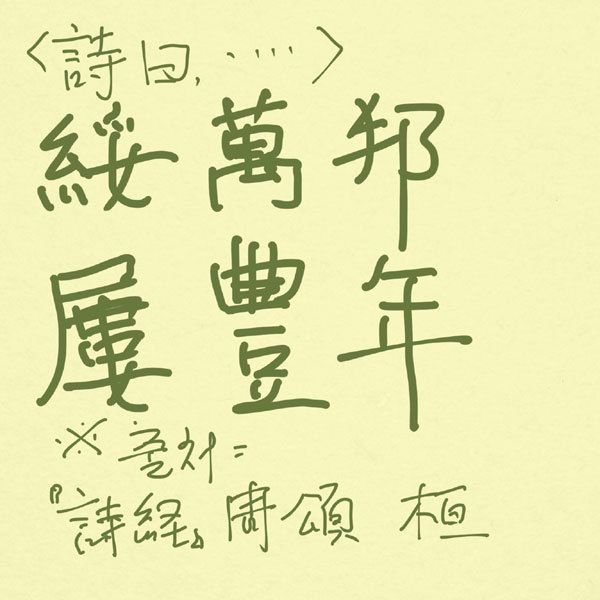 〈詩曰,‥‥〉
綏萬邦
屢豐年
※ 출처=
『詩経』周頌 桓